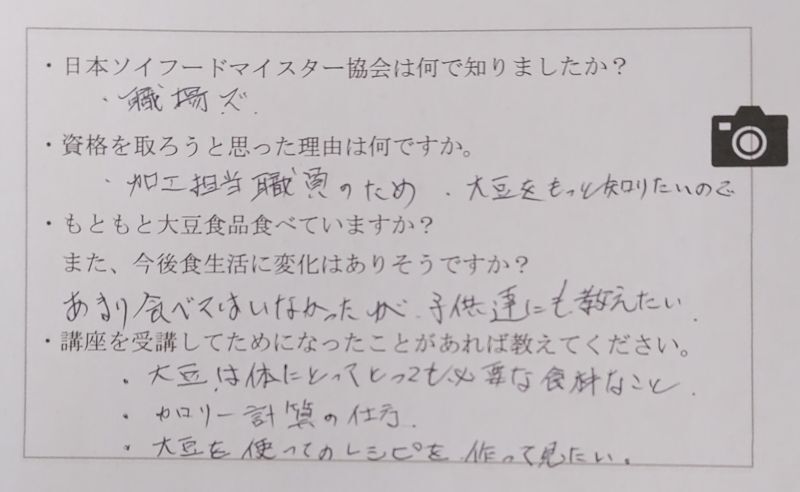 ・日本ソイフードマイスター協会は何で知りましたか？
・職場で.
・資格を取ろうと思った理由は何ですか。
・加工担当職員のため ・大豆をもっと知りたいので
・もともと大豆食品食べていますか？
また、今後食生活に変化はありそうですか？
あまり食べてはいなかったが、子供達にも教えたい.
・講座を受講してためになったことがあれば教えてください。
・大豆は体にとってとっても必要な食料なこと.
・カロリー計算の仕方.
・大豆を使ってのレシピを作って見たい。